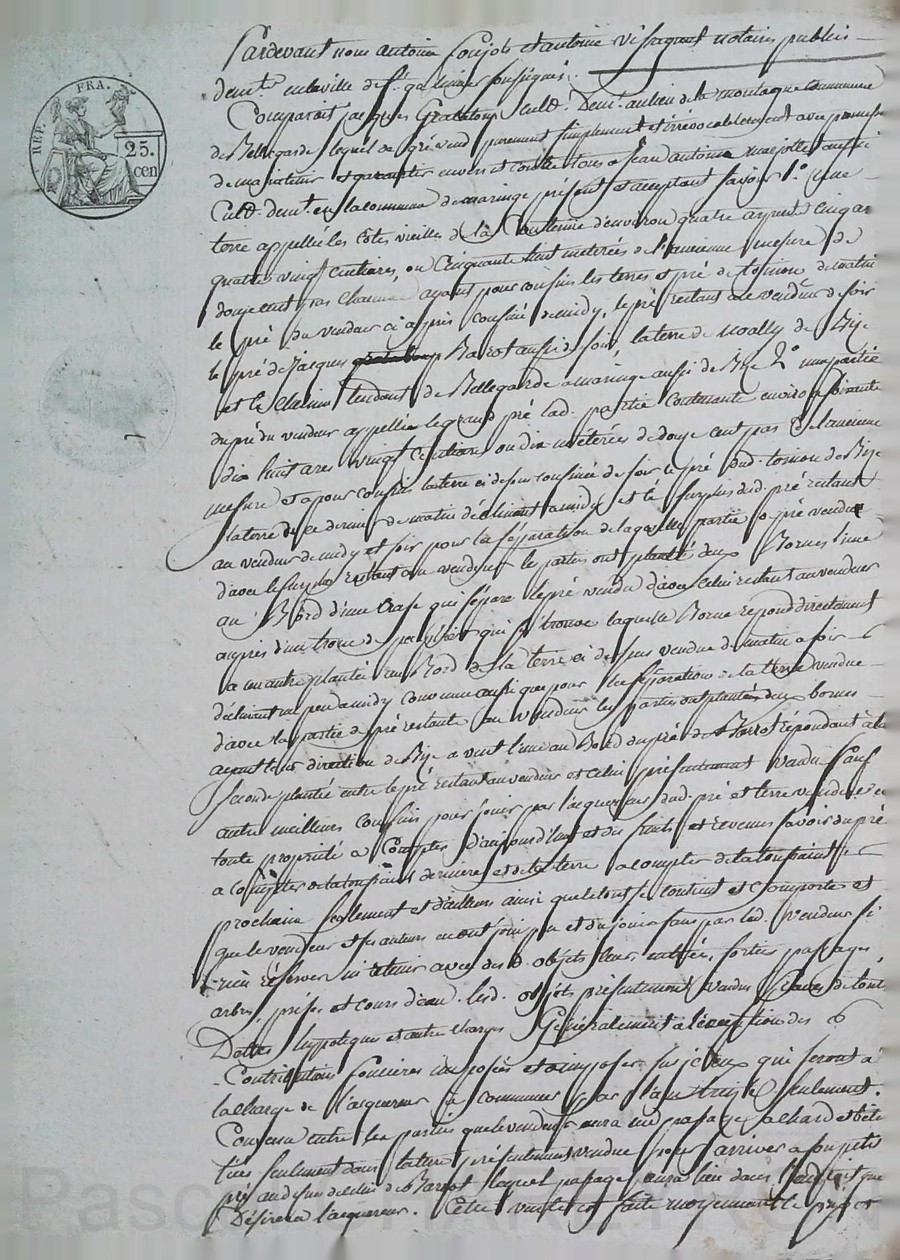 REP. FRA.
25.
cen
Pardevant nous antoine Coujots et antoine Vissaguet notaires publics
demt. en la ville de St. galmier soussignés.
Comparait jacques Grataloup Cultr. demt. au lieu de la montagne Commune
de Bellegarde lequel de gré vend purement simplement et irrevocablement avec promesse
de maintenir et garantir envers et contre tous a Jean antoine marjollet aussi
Cultr. demt. en la commune de maringe présent et acceptant savoir 1.° une
terre appellée les côtes vieilles de la Contenue d'environ quatre arpents cinq ares
quatre vingt centiares, ou Cinquante huit meterées de l'ancienne mesure de
douze cent pas chacune ayant pour confins les terres et pré de tosinou de matin
le pré du vendeur ci après confiné de midy, le pré restant au vendeur de soir
le pré de Jacques Barrot aussi de soir, la terre de noally de Bize
et le chemin tendant de Bellegarde a maringe aussi de Bize 2° une partie
du pré du vendeur appellée le grand pré lad. partie Contenante environ soixante
dix huit ares vingt centiares ou dix méterées de douze cent pas de l'ancienne
mesure et a pour confins la terre ci dessus confinée de soir le pré dud. tosinou de Bize
la terre de ce dernier de matin déclinant a midy et le surplus dud. pré restant
au vendeur de midy et soir pour la séparation de laquelle partie de pré vendue
d'avec le surplus restant au vendeur les parties ont planté deux Bornes l'une
au Bord d'une Rase qui sépare le pré vendu d'avec celui restant au vendeur
auprès d'un tronc de qui s'y trouve laquelle Borne répond directement
a un autre plantée au Bord de la terre ci dessus vendue de matin a soir
déclinant un peu a midy convenu aussi que pour la séparation de la terre vendue
d'avec la partie de pré restante au vendeur les parties ont plantés deux bornes
ayant leur direction de Bize a vent l'une au Bord du pré de Barrot répondant à la
seconde plantée entre le pré restant au vendeur et celui présentement vendu sauf
autre meilleurs confins pour jouir par l'acquereur dud. pré et terre vendus en
toute propriété a Compter d'aujourd'hui et des fruits et revenus savoir du pré
a compter de la toussaint derniere et de la terre a compter de la toussaint
prochaine seulement et d'ailleurs ainsi que le tout se contient et Comporte et
que le vendeur et ses auteurs en ont joui pu et du jouir sans par led. Vendeur si
rien réserver ni retenir avec des d. objets leur entrées, sorties passages
arbres, prises et cours d'eau. lesd. objets présentement vendus francs de tout
Dettes hypoteques et autre charges Généralement a l'exception des
Contributions foncières imposées et a imposer sur jceux qui seront a
la charge de l'acquereur a commencer par l'an treize seulement.
Convenu entre les parties que le vendeur aura un passage a chard et béte
liés seulement dans la terre présentement vendue pour arriver a son petit
pré au dessus de celui de Barrot lequel passage aura lieu dans l'endroit que
Désirera l'acquereur. Cette vente est faite moyennant le prix et